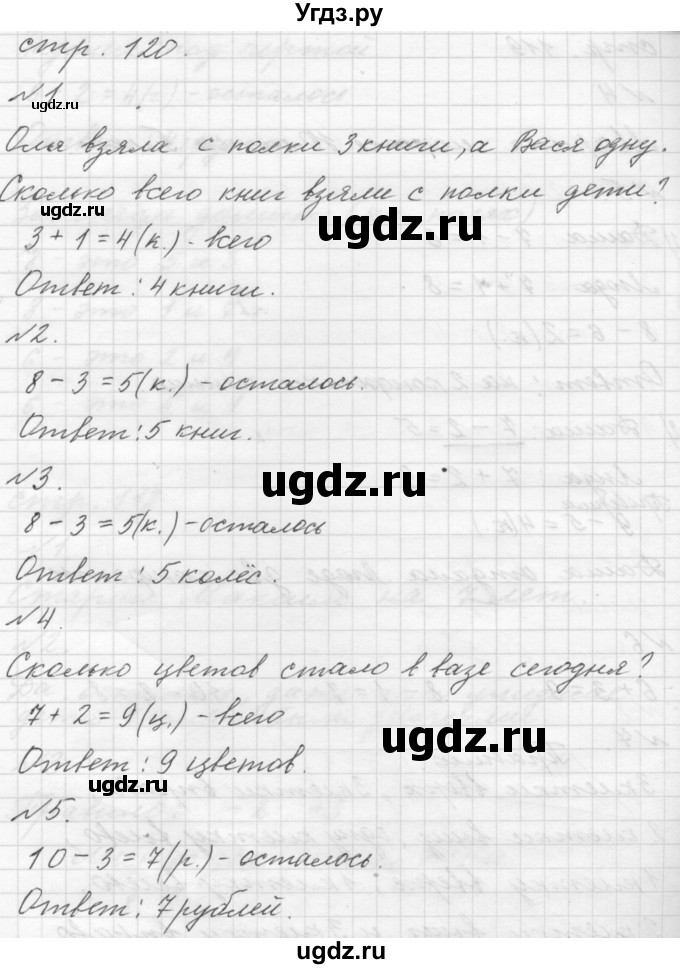 Угдз.ру
стр. 120.
№1.
Оля взяла с полки 3 книги, а Вася одну.
Сколько всего книг взяли с полки дети?
3 + 1 = 4 (к.) - всего
Ответ: 4 книги.
№2.
8 - 3 = 5 (к.) - осталось.
Ответ: 5 книг.
№3.
8 - 3 = 5 (к.) - осталось
Ответ: 5 колёс.
№4.
Сколько цветов стало в вазе сегодня?
7 + 2 = 9 (ц.) - всего
Ответ: 9 цветов.
№5.
10 - 3 = 7 (р.) - осталось.
Ответ: 7 рублей.
ugdz.ru
ugdz.ru
ugdz.ru
ugdz.ru
ugdz.ru
ugdz.ru
ugdz.ru
ugdz.ru
ugdz.ru
ugdz.ru